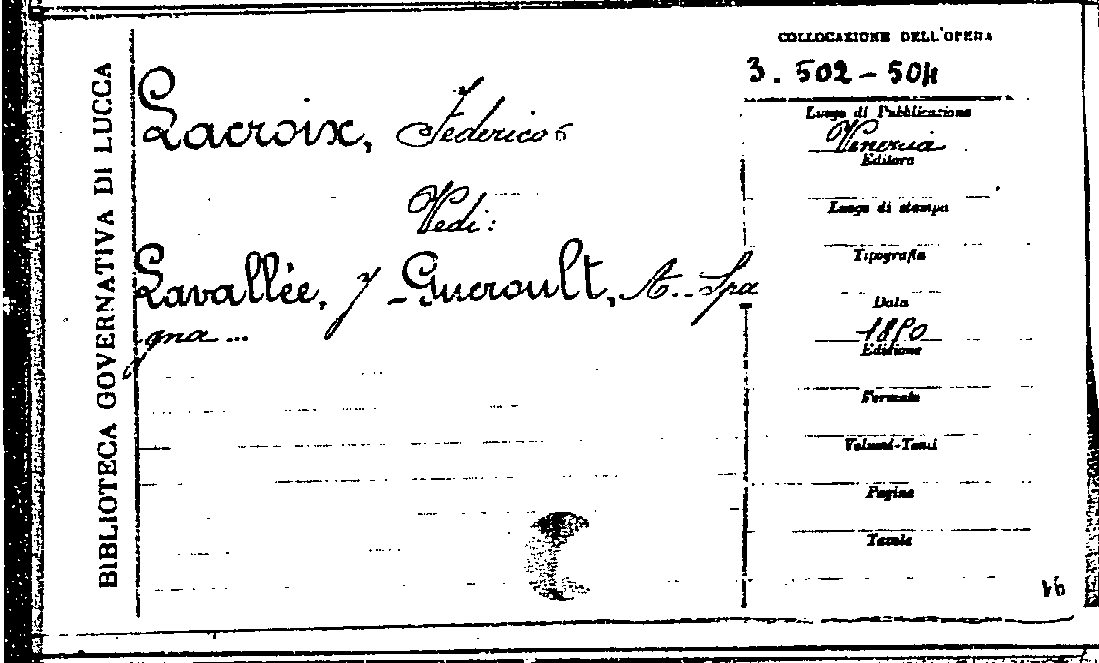 BIBLIOTECA GOVERNATIVA DI LUCCA
COLLOCAZIONE DELL'OPERA
3. 502 - 504
Lacroix, Federico
Vedi:
Lavallée, J - Gueroult, A. - Spa
gna ...
Luogo di Pubblicazione
Venezia
Editore
Luogo di stampa
Tipografia
Data
Edizione
Formato
Volumi-Tomi
Pagine
Tavole